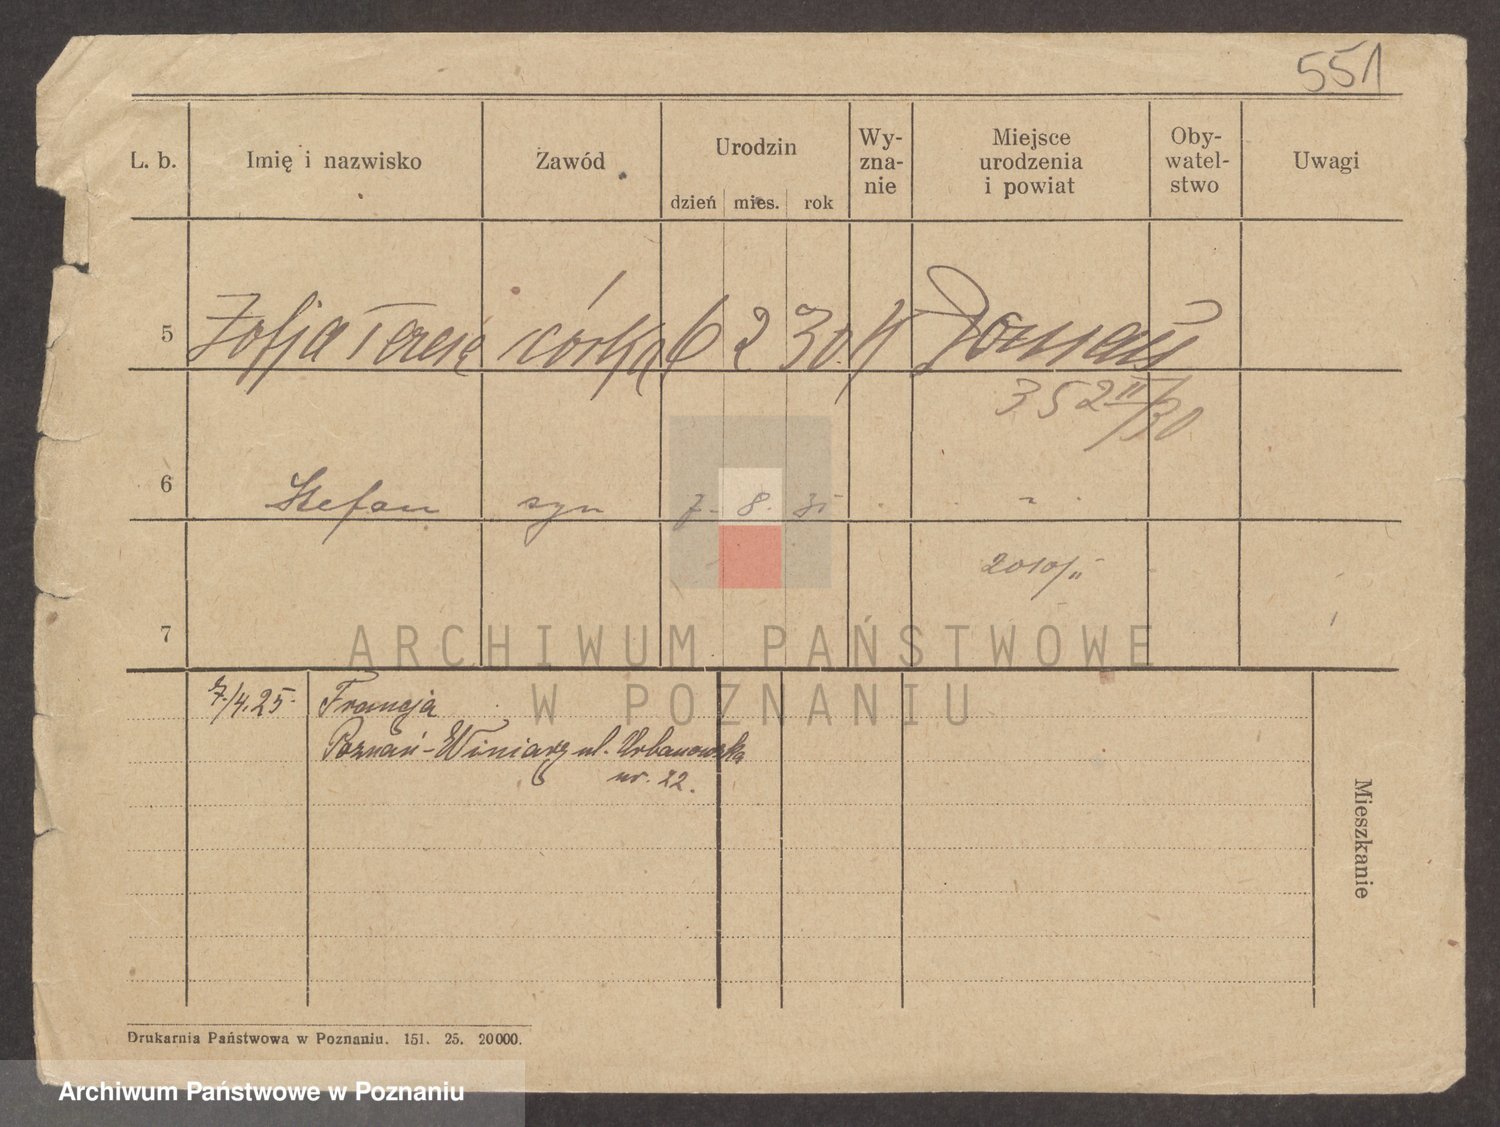 551
L. b. Imię i nazwisko Zawód Urodzin Wy-zna-nie Miejsce urodzenia i powiat Oby-watel-stwo Uwagi
dzień mies. rok
5 Zofja Teresa córka 6 2 30. K Poznań
352 II/30
6 Stefan syn 7. 8. 31 "
2010/II
7
ARCHIWUM PAŃSTWOWE
W POZNANIU
7/4.25 Francja
Poznań-Winiary ul. Urbanowska
nr. 22.
Mieszkanie
Drukarnia Państwowa w Poznaniu. 151. 25. 20000.
Archiwum Państwowe w Poznaniu